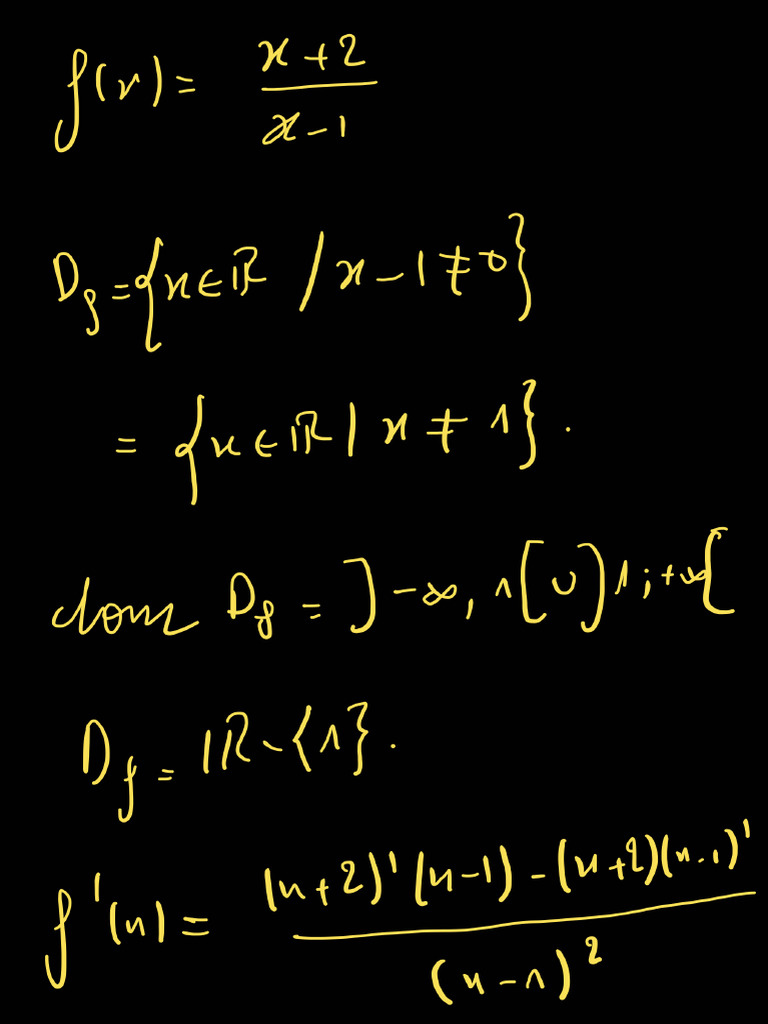 f(x) = (x+2)/(x-1)
D_f = {x ∈ ℝ / x - 1 ≠ 0}
= {x ∈ ℝ | x ≠ 1}.
donc D_f = ]-∞, 1[ ∪ ]1; +∞[
D_f = ℝ - {1}.
f'(x) = ((x+2)'(x-1) - (x+2)(x-1)')/(x-1)²